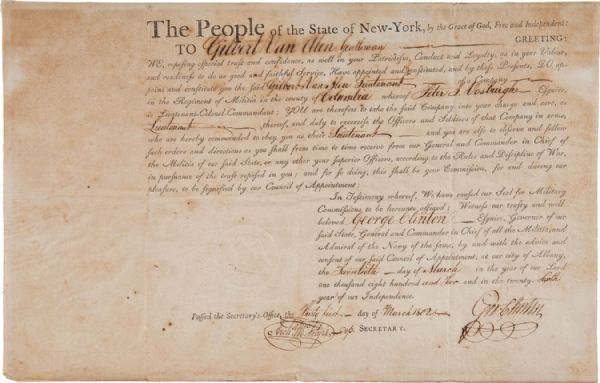 The People of the State of New-York, by the Grace of God, Free and Independent:
TO Gilbert Van Alen Gentleman GREETING:
WE, reposing especial trust and confidence, as well in your Patriotism, Conduct and Loyalty, as in your Valour,
and readiness to do us good and faithful Service, Have appointed and constituted, and by these Presents, DO, ap-
point and constitute you the said Gilbert Van Alen Lieutenant of a Company
in the Regiment of Militia in the county of Columbia whereof Peter I. Vosburgh Esquire,
is Lieutenant-Colonel Commandant; YOU are therefore to take the said Company into your charge and care, as
Lieutenant thereof, and duly to exercise the Officers and Soldiers of that Company in arms,
who are hereby commanded to obey you as their Lieutenant and you are also to observe and follow
such orders and directions as you shall from time to time receive from our General and Commander in Chief of
the Militia of our said State, or any other your superior Officers, according to the Rules and Discipline of War,
in pursuance of the trust reposed in you; and for so doing, this shall be your Commission, for and during our
pleasure, to be signified by our Council of Appointment.
In Testimony whereof, We have caused our Seal for Military
Commissions to be hereunto affixed; Witness our trusty and well
beloved George Clinton Esquire, Governor of our
said State, General and Commander in Chief of all the Militia, and
Admiral of the Navy of the same, by and with the advice and
consent of our said Council of Appointment, at our city of Albany,
the Twentieth day of March in the year of our Lord
one thousand eight hundred and two and in the twenty-sixth
year of our Independence.
Passed the Secretary's-Office, the day of March 1802
Geo Clinton
SECRETARY.